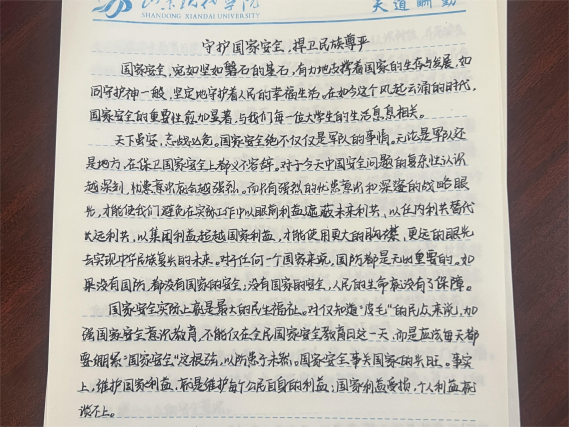 山东现代学院 天道酬勤
SHANDONG XIANDAI UNIVERSITY
守护国家安全，捍卫民族尊严
国家安全，宛如坚如磐石的基石，有力地支撑着国家的生存与发展，如
同守护神一般，坚定地守护着人民的幸福生活。在如今这个风起云涌的时代，
国家安全的重要性愈加显著，与我们每一位大学生的生活息息相关。
天下虽安，忘战必危。国家安全绝不仅仅是军队的事情。无论是军队还
是地方，在保卫国家安全上都义不容辞。对于今天中国安全问题的复杂性认识
越深刻，忧患意识就会越强烈。而只有强烈的忧患意识和深邃的战略眼
光，才能使我们避免在实际工作中以眼前利益遮蔽未来利益，以任内利益替代
长远利益，以集团利益超越国家利益，才能使用更大的胸襟，更远的眼光
去实现中华民族复兴的未来。对于任何一个国家来说，国防都是无比重要的。如
果没有国防，都没有国家的安全；没有国家的安全，人民的生命就没有了保障。
国家安全实际上就是最大的民生福祉。对仅知道“皮毛”的民众来说，加
强国家安全意识教育，不能仅在全民国家安全教育日这一天，而是应该每天都
要绷紧“国家安全”这根弦，以防患于未然。国家安全事关国家的兴旺。事实
上，维护国家利益，就是维护每个公民自身的利益，国家利益受损，个人利益就
谈不上。